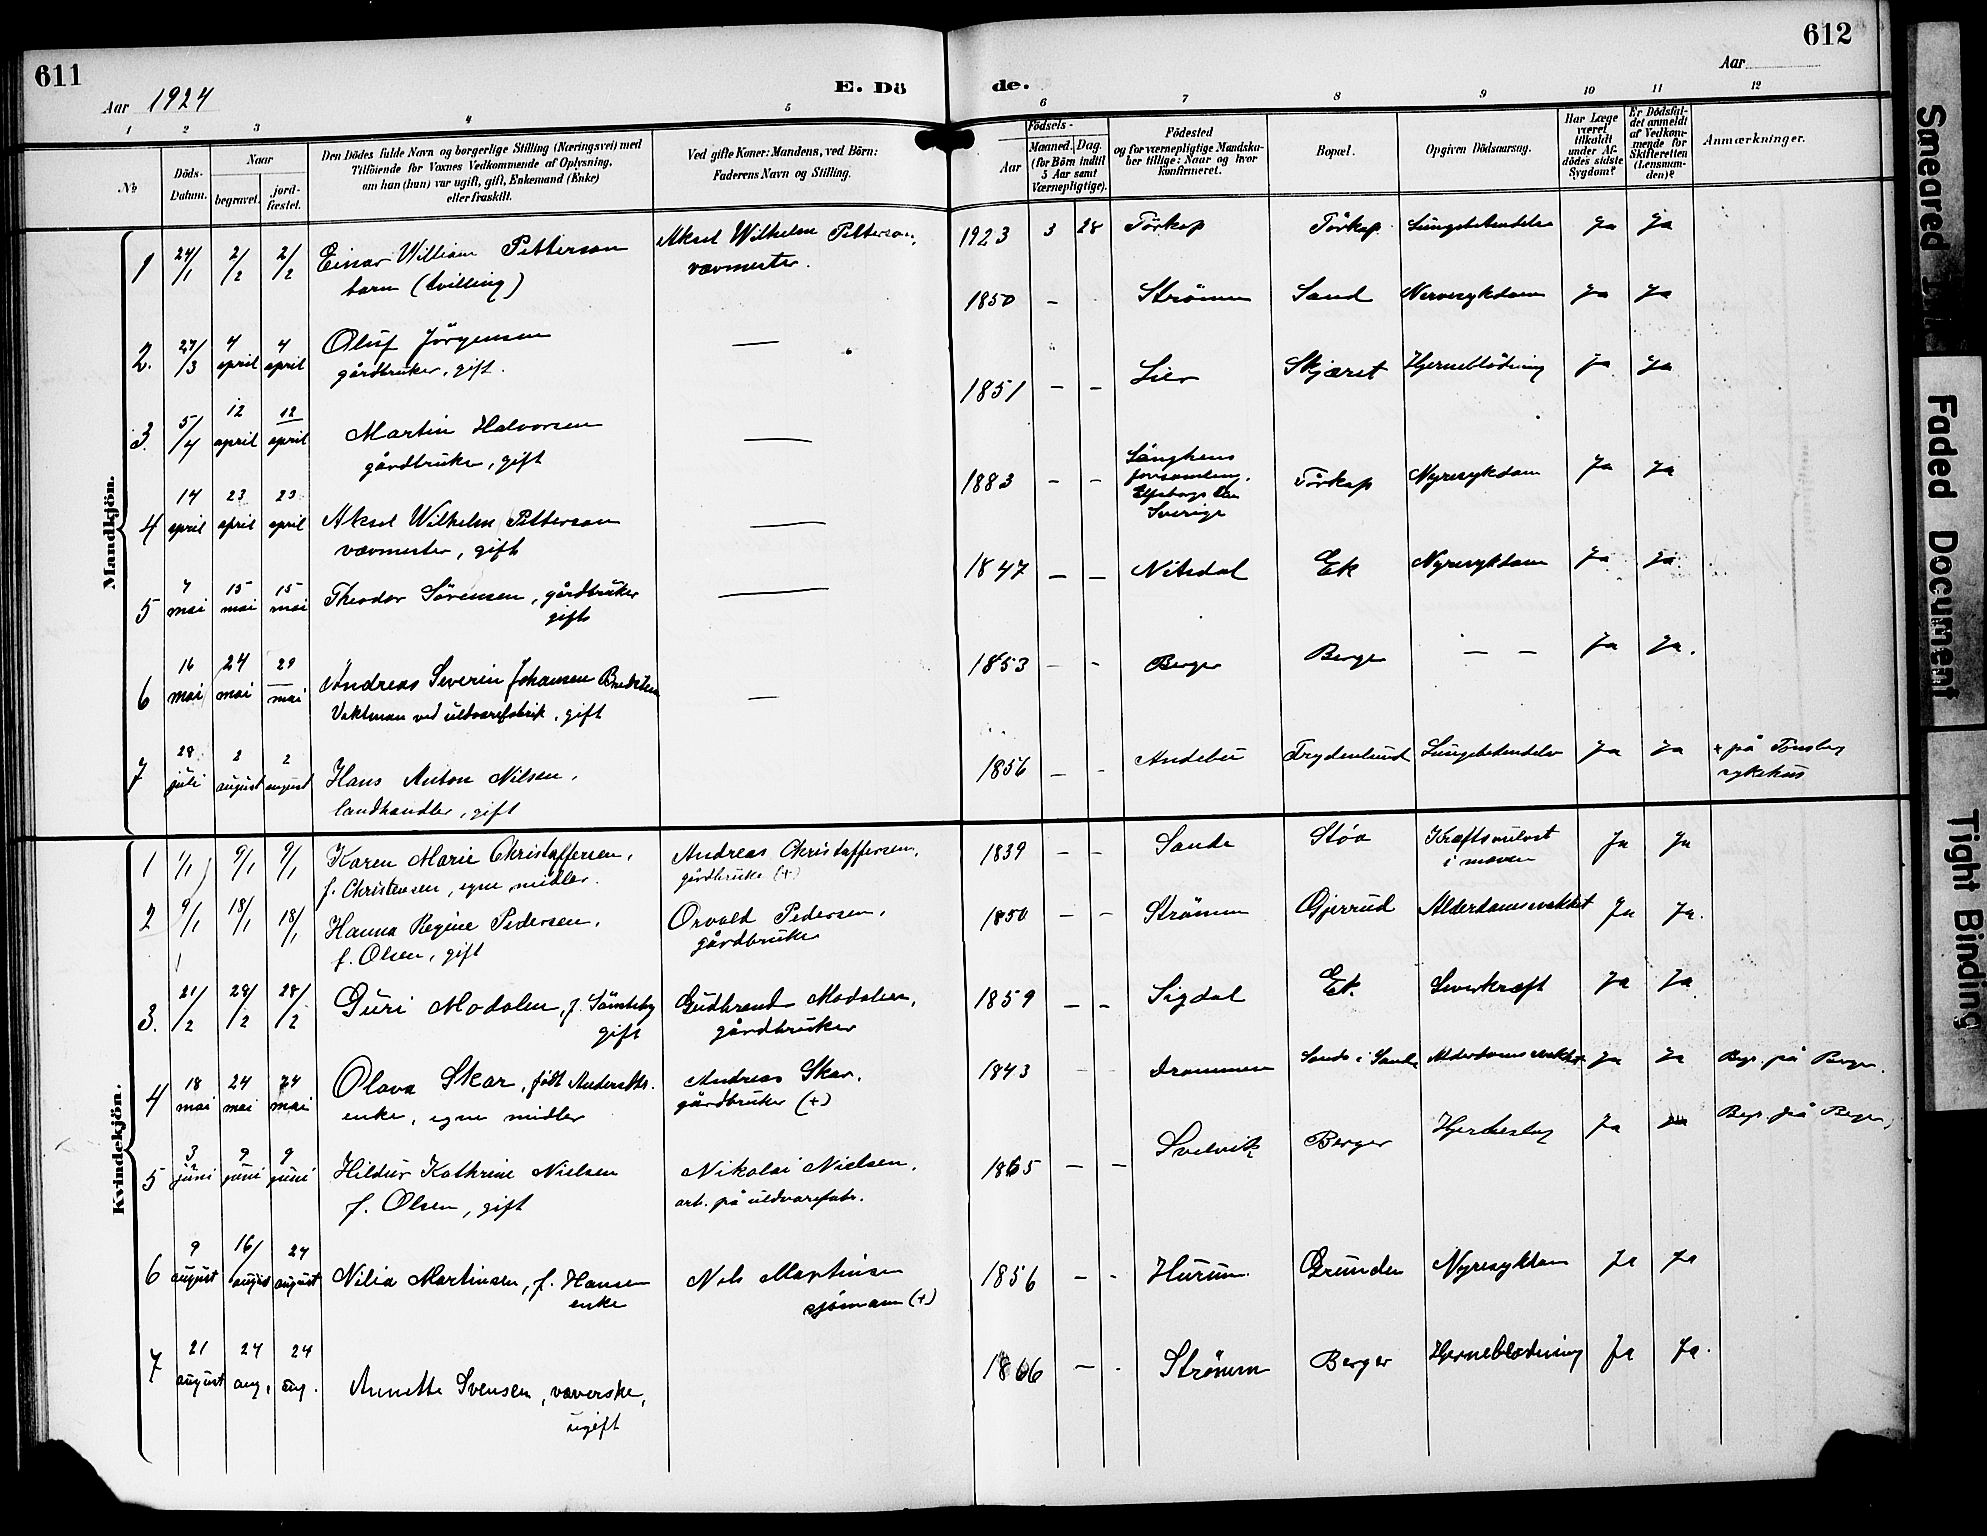 611
612
Aar 1924
E. Dö
de.
Aar
1 2 3 4 5
6 7 8 9 10 11 12
No
Döds-Datum.
Naar
begravet.
jord-fæstet.
Den Dödes fulde Navn og borgerlige Stilling (Næringsvei) med
Tilföiende for Voxnes Vedkommende af Oplysning,
om han (hun) var ugift, gift, Enkemand (Enke)
eller fraskilt.
Ved gifte Koner: Mandens, ved Börn:
Faderens Navn og Stilling.
Födsels-
Aar
Maaned. Dag.
(for Börn indtil
5 Aar samt
Værnepligtige).
Födested
og for værnepligtige Mandska-
ber tillige: Naar og hvor
konfirmeret.
Bopæl.
Opgiven Dödsaarsag.
Har Læge
været
tilkaldt
under Af-
dödes sidste
Sygdom?
Er Dödsfal-
det anmeldt
af Vedkom-
mende for
Skifteretten
(Lensman-
den)?
Anmærkninger.
Mandkjön.
1 24/1 2/2 2/2 Einar William Petterson Aksel Wilhelm Petterson, 1923 3 28 Törkop Törkop Lungebetendelse Ja Ja
barn (tvilling) vævmester.
2. 27/3 4 april 4 april Oluf Jörgensen — 1850 - Strömm Sand Nervesykdom Ja Ja
gårdbruker, gift.
3. 5/4 12 april 12 april Martin Halvorsen — 1851 - - Lier Skjæret Hjerneblödning Ja Ja
gårdbruker, gift
4 14 april 23 april 23 april Aksel Wilhelm Petterson — 1883 - - Länghems Törkop Nyresykdom Ja Ja
forsamling,
Elfsborgs Län
Sverige
vævmester, gift
5 7 mai 15 mai 15 mai Theodor Sörensen, gårdbruker — 1847 - - Nitedal Ek Nyresykdom Ja Ja
gift
6 16 mai 24 mai 29 mai Andreas Severin Johansen — 1853 - - Berger Berger — — Ja Ja.
Vaktman ved uldvarefabrik, gift
7 28 juli 2 august 2 august Hans Anton Nilsen, 1856 - - Andebu Frydenlund Lungebetendelse Ja Ja + på Tönsberg
sykehus
landhandler, gift
Kvindekjön.
1 1/1 9/1 9/1 Karen Marie Christoffersen, Andreas Christoffersen, 1839 - - Sande Stöa Kræftsvulst Ja Ja
i maven
f. Christensen, egne midler. gårdbruker (+)
2 9/1 18/1 18/1 Hanna Regine Pedersen, Orvald Pedersen, 1850 - - Strömm Gjerrud Alderdomsvakhet Ja Ja.
f. Olsen, gift gårdbruker
3. 21/2 28/2 28/2 Guri Modalen, f. Gudbrand Modalen, 1859 - - Sigdal Ek. Leverkræft Ja Ja
gift gårdbruker
4 18 mai 24 mai 24 mai Olava Skar, født Andreas Skar, 1843 - - Drammen Sande i Sande Alderdomsvakhet Ja Ja Begr. på Berger.
enke, egne midler gårdbruker (+)
5 3 juni 9 juni 9 juni Hildur Kathrine Nielsen Nikolai Nielsen, 1865 - - Svelvik Berger Hjerteslag Ja Ja Begr. på Berger
f. Olsen, gift arb. på uldvarefabr.
6 9 august 16/ august 24 august Nilia Martinsen, f. Hansen Nils Martinsen 1856 - - Hurum Grunden Nyresykdom Ja Ja
enke sjömann (+)
7 21 august 24 aug. 24 aug. Annette Svensen, væverske, 1866 - - Strömm Berger Hjerneblödning Ja Ja.
ugift
Smeared
Faded Document
Tight Binding